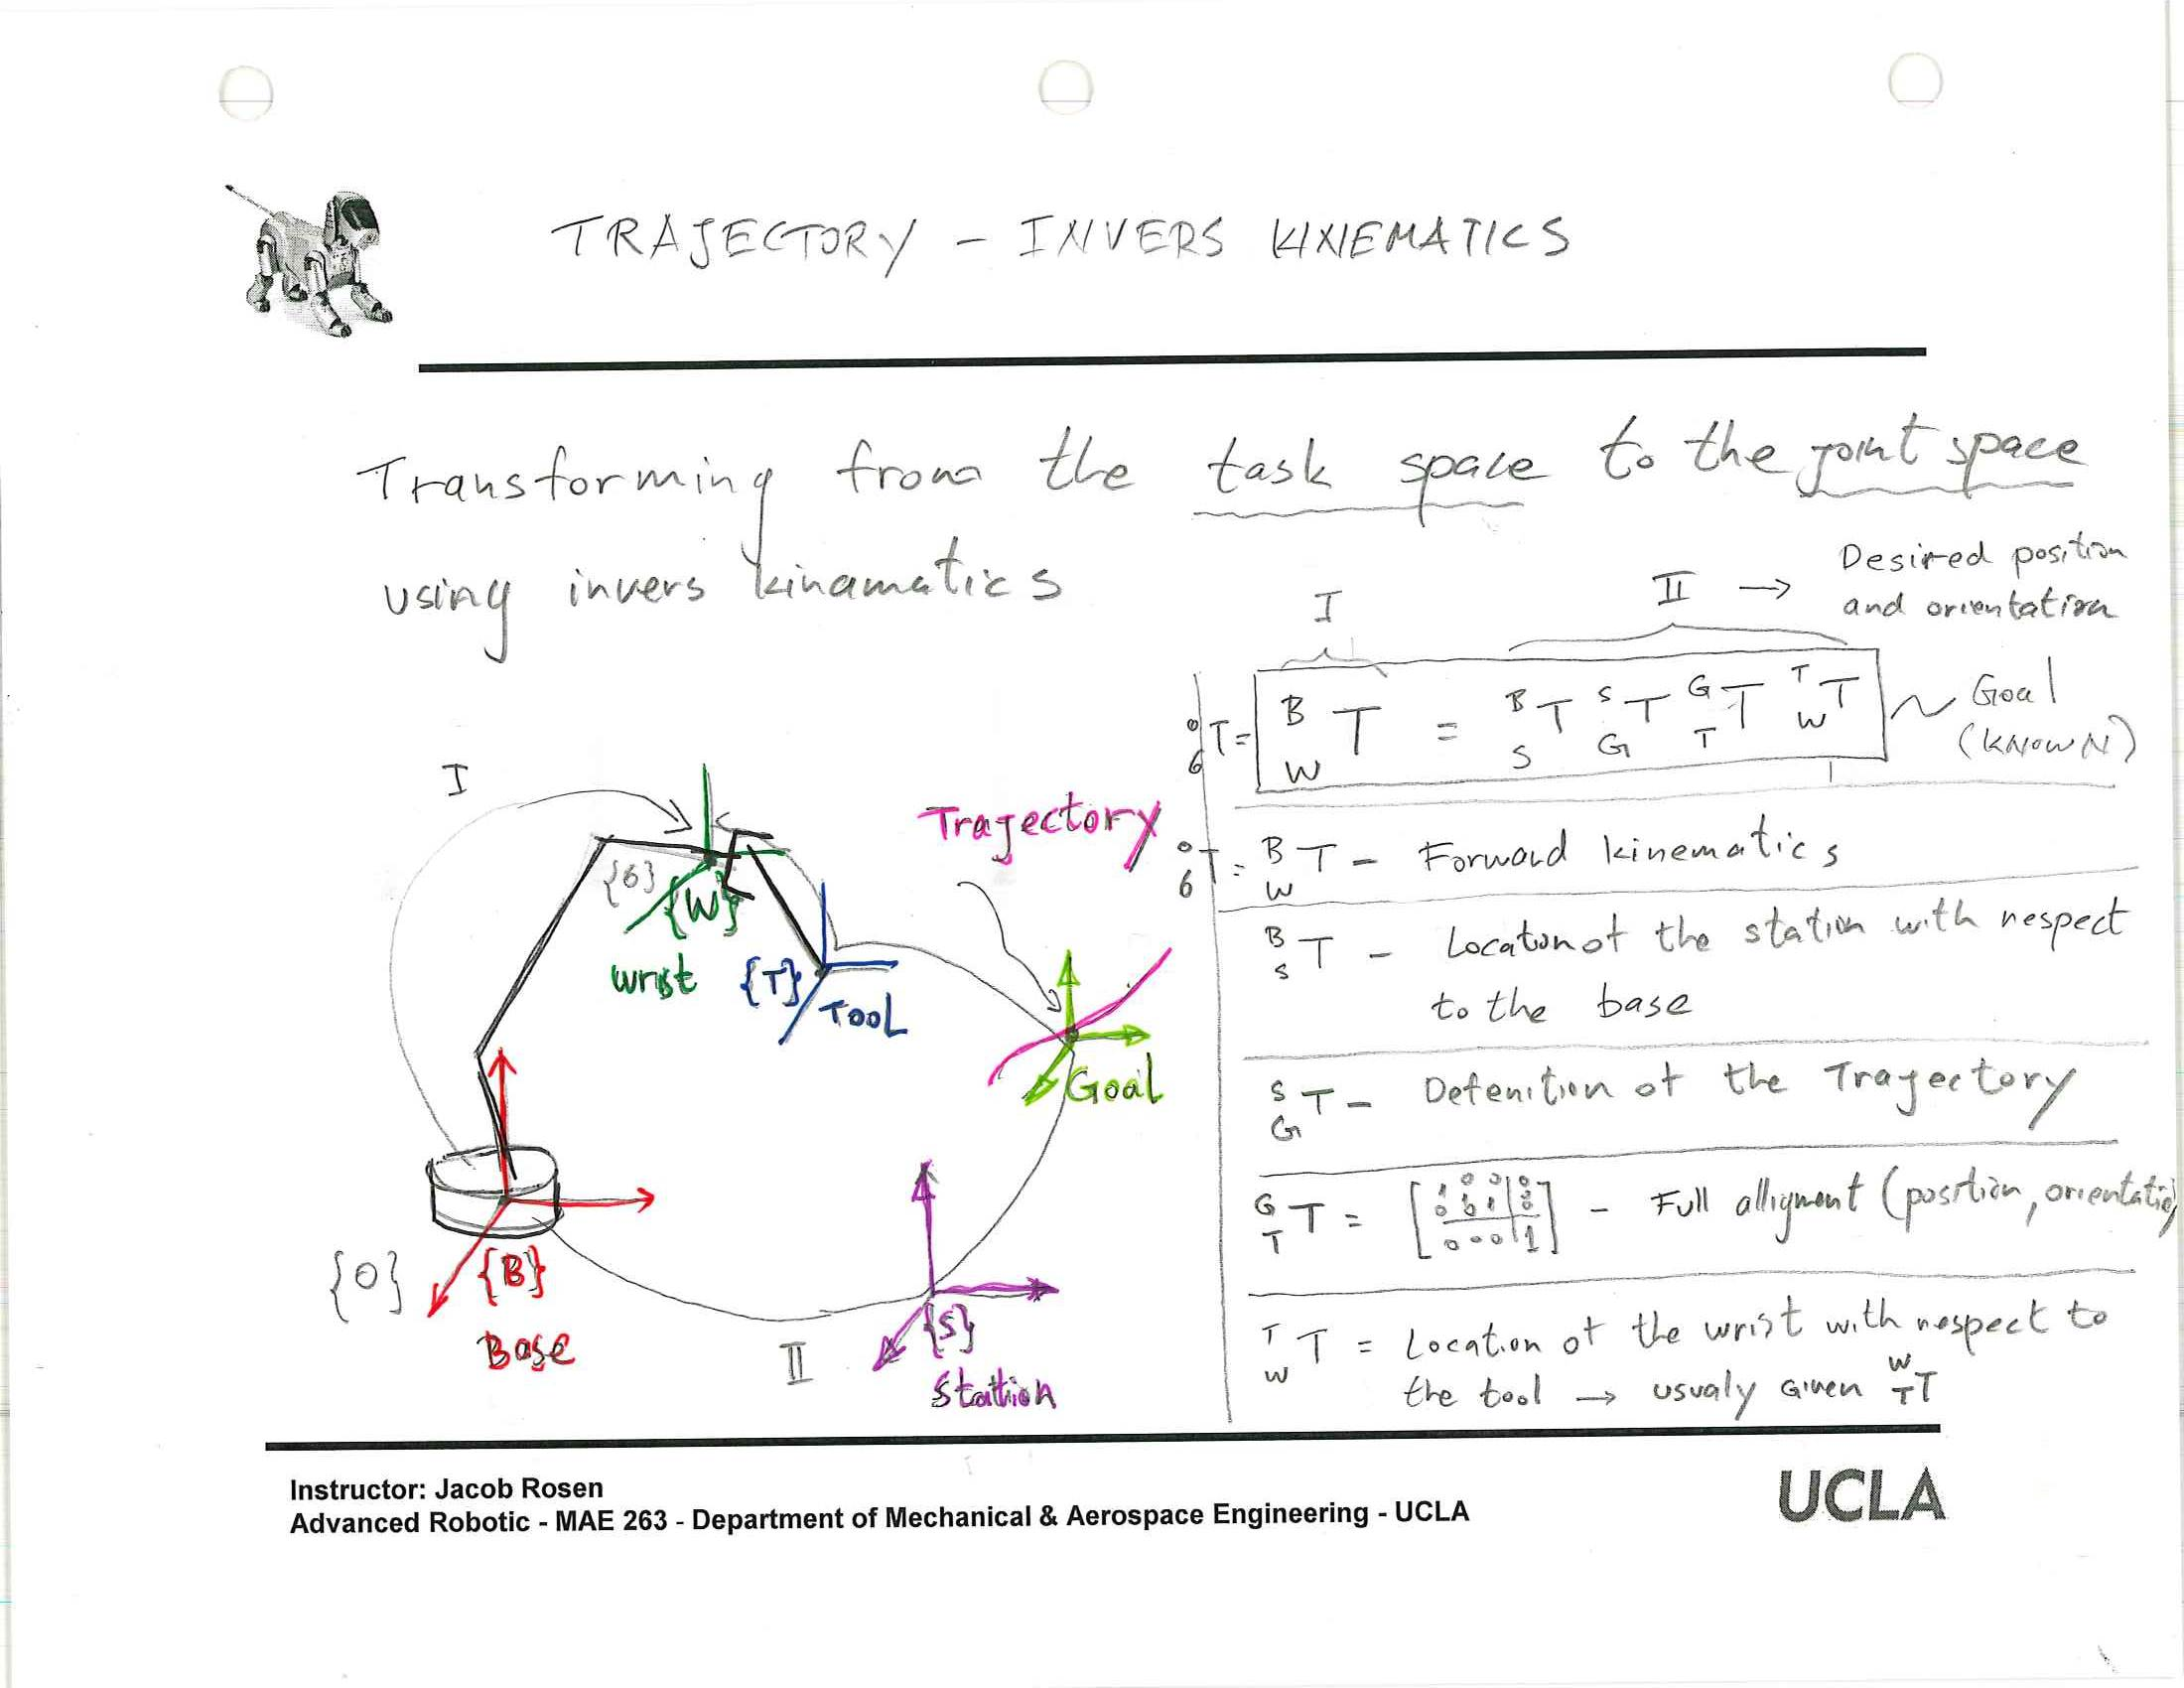 TRAJECTORY - INVERS KINEMATICS
Transforming from the task space to the joint space
using invers kinamatics
I
II → Desired position
and orientation
0 6 T = B W T = B S T S G T G T T T W T ~ Goal
(KNOWN)
0 6 T = B W T - Forward kinematics
B S T - Location of the station with respect
to the base
S G T - Defenition of the Trajectory
G T T = [ ] - Full alligment (position, orientatio
T W T = Location of the wrist with respect to
the tool → usualy Given W T T
I
{6}
{W}
wrist
{T}
TOOL
Trajectory
Goal
{0}
{B}
Base
II
{S}
Station
Instructor: Jacob Rosen
Advanced Robotic - MAE 263 - Department of Mechanical & Aerospace Engineering - UCLA
UCLA